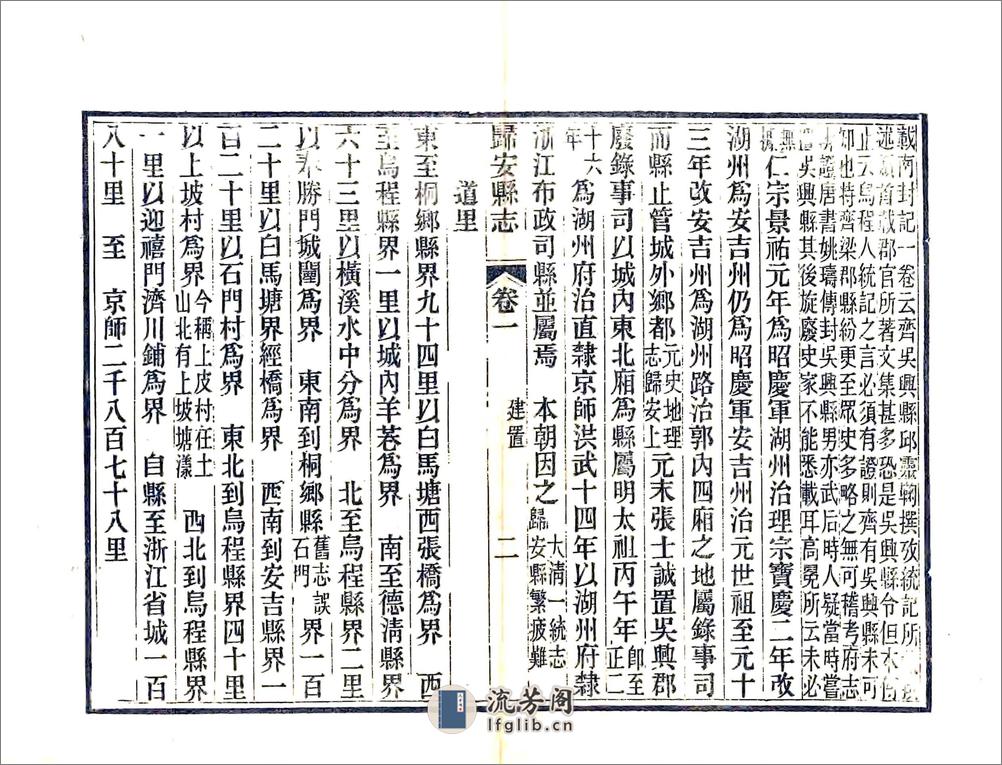 載河封記一卷云齊吳興縣邱靈鞠撰攷統記所
述須首載郡官所著文集甚多恐是吳興縣令但
止云烏程人統記之言必須有證則齊有吳興縣未可
知也特齊梁郡縣紛更至眾史多略之無可稽考府志
引證唐書姚璹傳封吳興縣男亦武后時人疑當時嘗
置吳興縣其後旋廢史家不能悉載耳高冕所云未必
無據 仁宗景祐元年為昭慶軍湖州治理宗寶慶二年改
湖州為安吉州仍為昭慶軍安吉州治元世祖至元十
三年改安吉州為湖州路治郭內四厢之地屬錄事司
而縣止管城外鄉都元史地理志歸安上元末張士誠置吳興郡
廢錄事司以城內東北厢為縣屬明太祖丙午年卽至正二
十六年為湖州府治直隸京師洪武十四年以湖州府隸
浙江布政司縣並屬焉 本朝因之大淸一統志歸安縣繁疲難
歸安縣志 卷一 建置 二
道里
東至桐鄉縣界九十四里以白馬塘西張橋為界 西
至烏程縣界一里以城內羊巷為界 南至德淸縣界
六十三里以橫溪水中分為界 北至烏程縣界二里
以奉勝門城闉為界 東南到桐鄉縣舊志誤石門界一百
二十里以白馬塘界經橋為界 西南到安吉縣界一
百二十里以石門村為界 東北到烏程縣界四十里
以上坡村為界今稱上皮村在土山北有上坡塘漾 西北到烏程縣界
一里以迎禧門濟川鋪為界 自縣至浙江省城一百
八十里 至 京師二千八百七十八里
流芳阁
lfglib.cn